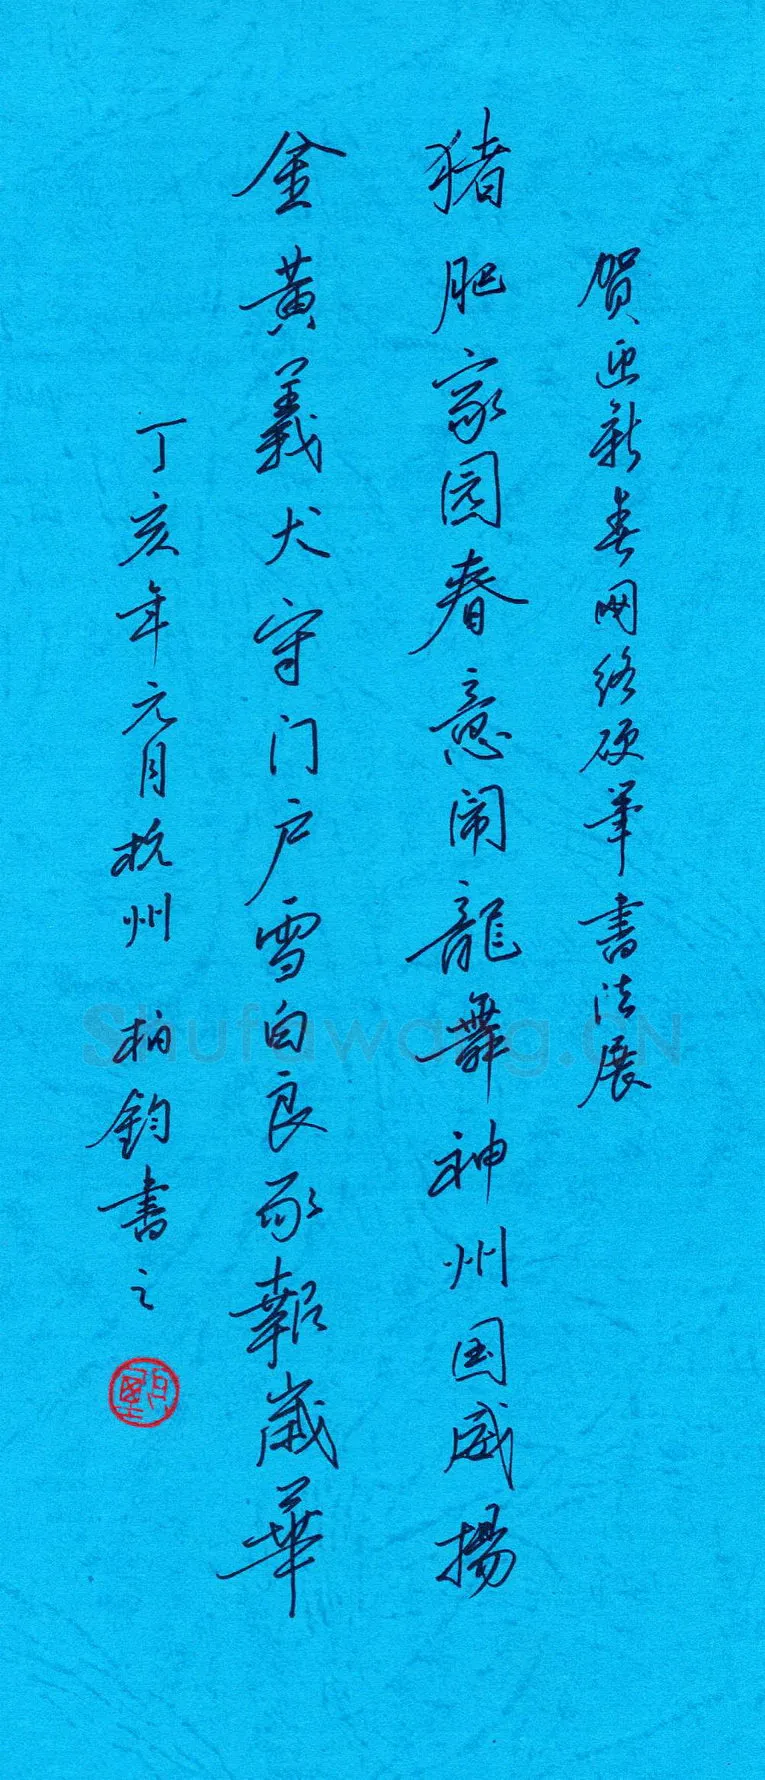 贺迎新春网络硬笔书法展
猪肥家园春意闹龍舞神州国威揚
金黄義犬守门户雪白良豕報歲華
丁亥年元月杭州 柏鈞書之
Shufawang.CN